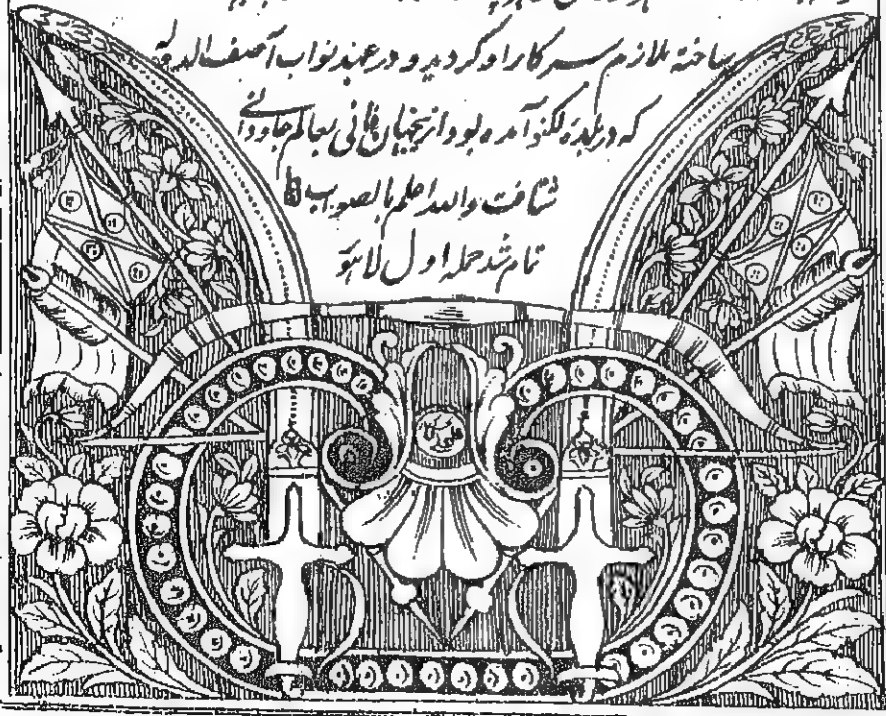 ساخته ملازم سرکار او گردید و در عهد نواب آصف الدوله
که در بلدهٔ لکهنؤ آمده بود ازینجهان فانی بعالم جاودانی
شتافت والله اعلم بالصواب
تمام شد حمله اول